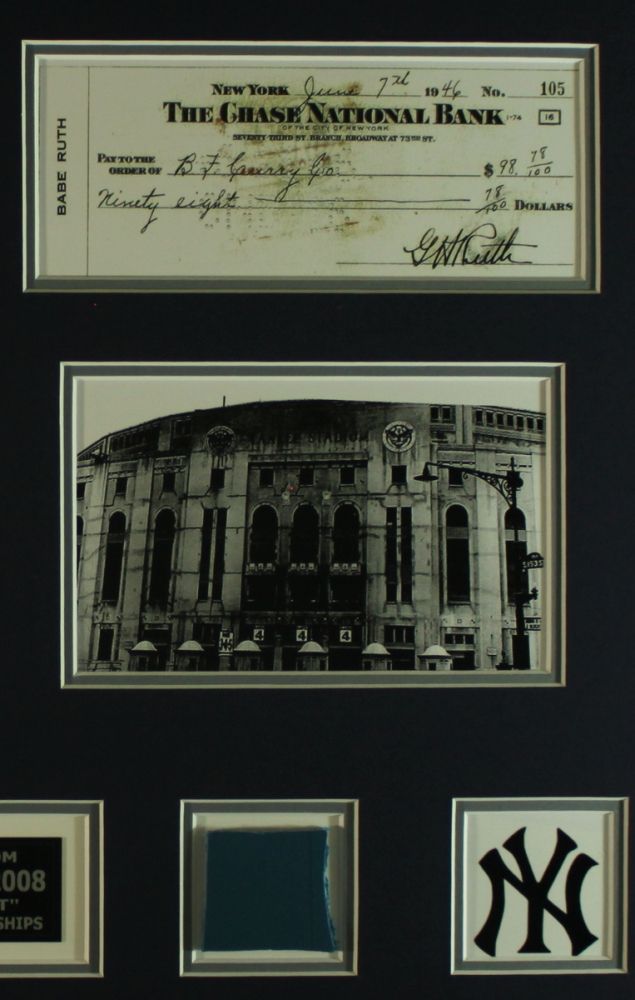 BABE RUTH
NEW YORK June 7th 1946 No. 105
THE CHASE NATIONAL BANK 1-74 16
OF THE CITY OF NEW YORK
SEVENTY-THIRD ST. BRANCH, BROADWAY AT 73RD ST.
PAY TO THE
ORDER OF B F Curry Co $ 98. 78/100
Ninety eight 78/100 DOLLARS
GH Ruth
YANKEE STADIUM
4 4 4
OM
2008
T"
SHIPS
NY